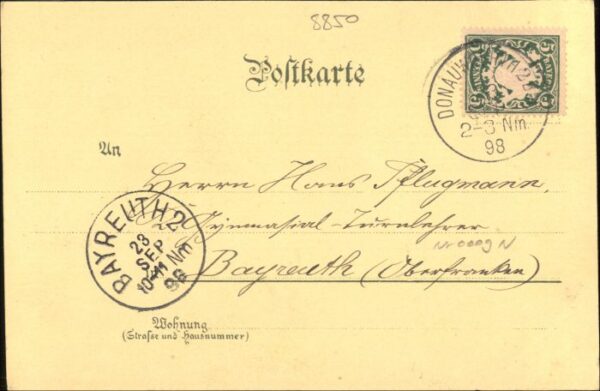 8850
Postkarte
5 5
DONAUW
2-3 Nm.
98
An
Herrn Hans Pflugmann,
K. Gymnasial-Turnlehrer
Bayreuth (Oberfranken)
BAYREUTH 2
23
SEP
10-11 Nm
98
Wohnung
(Strasse und Hausnummer)